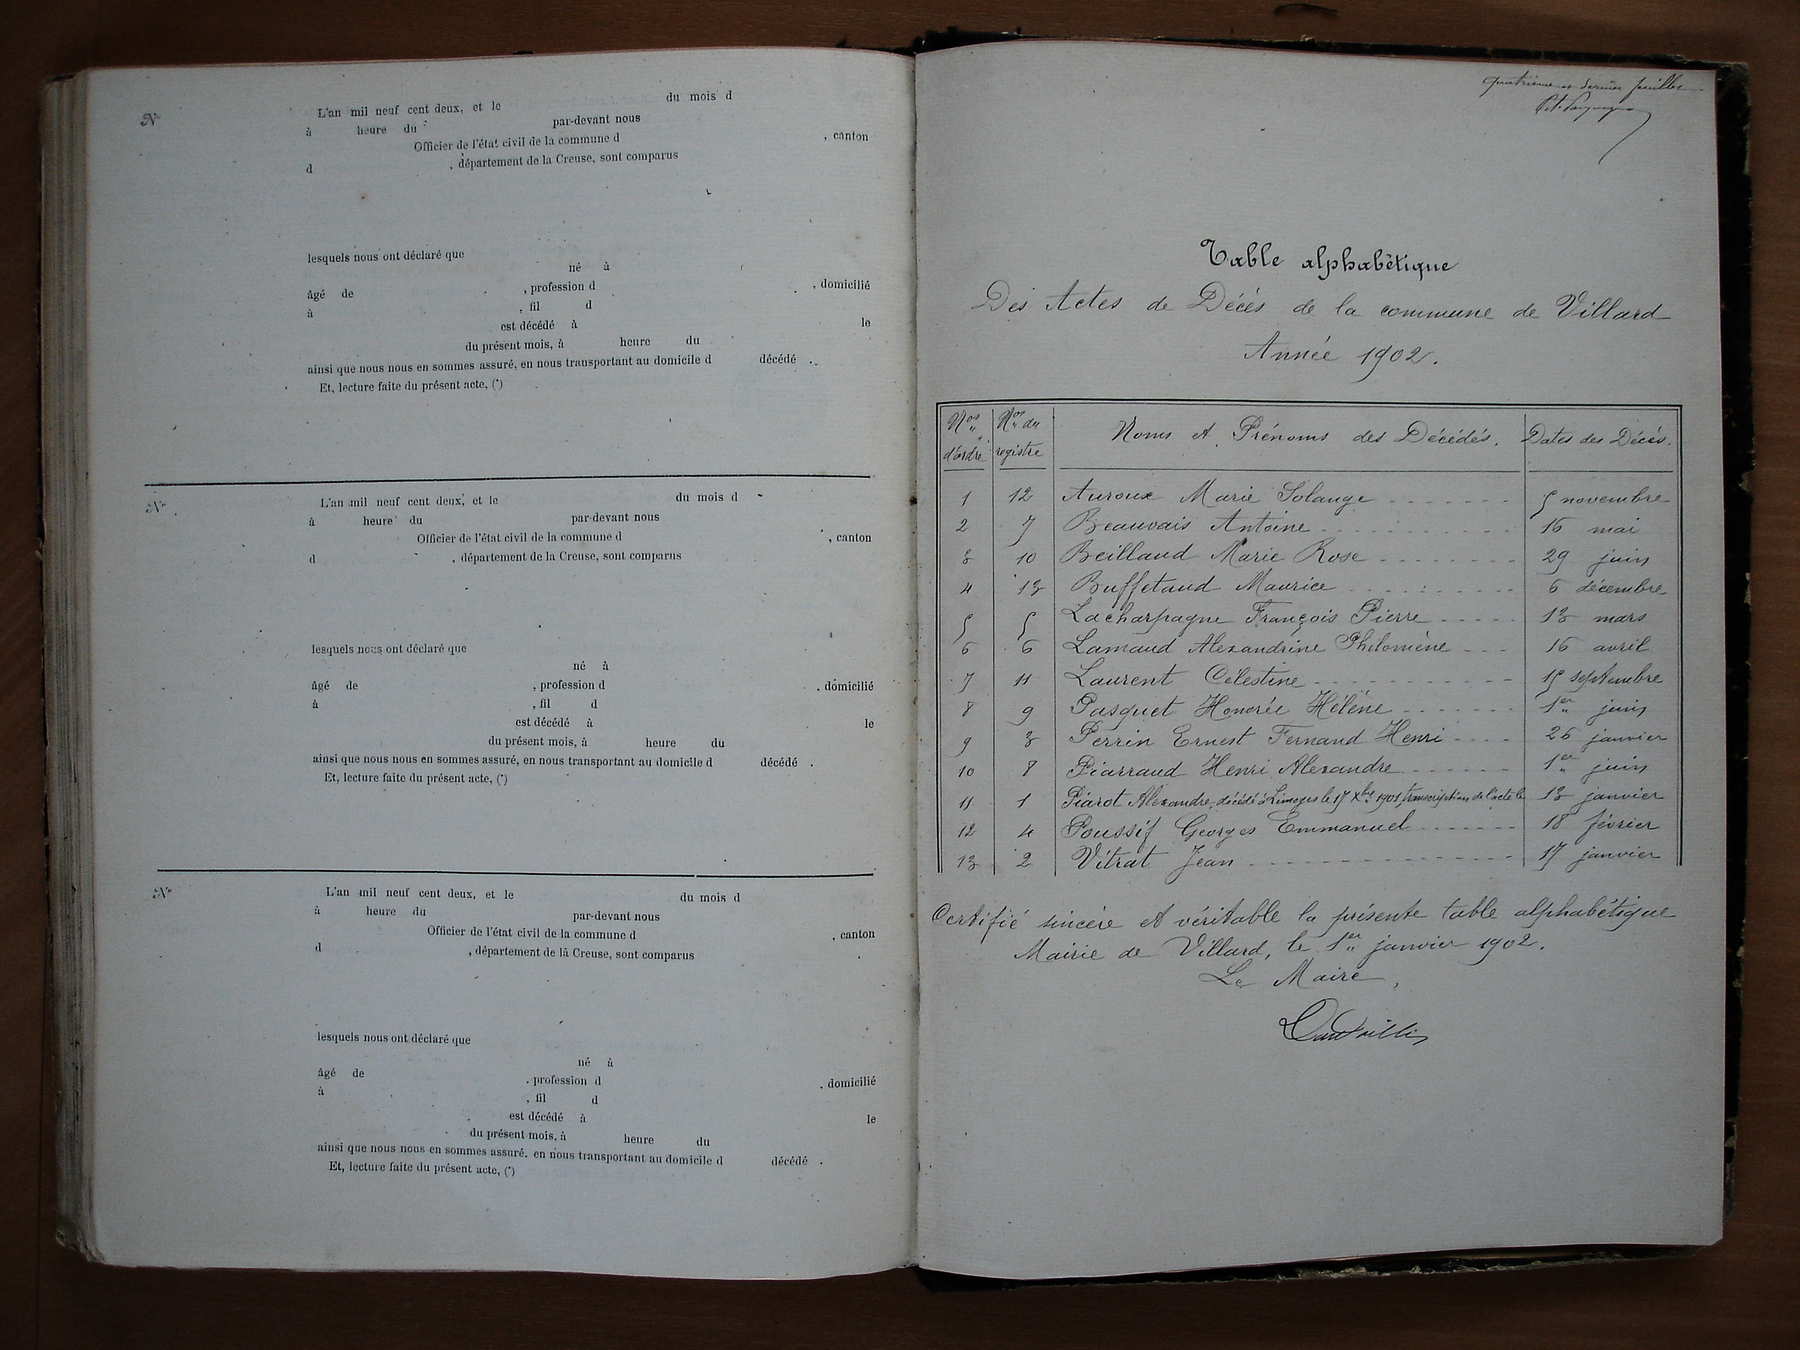 N°
L'an mil neuf cent deux, et le du mois d
à heure du par-devant nous
Officier de l'état civil de la commune d , canton
d , département de la Creuse, sont comparus
lesquels nous ont déclaré que
né à
âgé de , profession d , domicilié
à , fil d
est décédé à le
du présent mois, à heure du
ainsi que nous nous en sommes assuré, en nous transportant au domicile d décédé .
Et, lecture faite du présent acte, (*)
N°
L'an mil neuf cent deux, et le du mois d
à heure du par-devant nous
Officier de l'état civil de la commune d , canton
d , département de la Creuse, sont comparus
lesquels nous ont déclaré que
né à
âgé de , profession d , domicilié
à , fil d
est décédé à le
du présent mois, à heure du
ainsi que nous nous en sommes assuré, en nous transportant au domicile d décédé .
Et, lecture faite du présent acte, (*)
N°
L'an mil neuf cent deux, et le du mois d
à heure du par-devant nous
Officier de l'état civil de la commune d , canton
d , département de la Creuse, sont comparus
lesquels nous ont déclaré que
né à
âgé de , profession d , domicilié
à , fil d
est décédé à le
du présent mois, à heure du
ainsi que nous nous en sommes assuré, en nous transportant au domicile d décédé .
Et, lecture faite du présent acte, (*)
Quatrième et dernier feuillet
Table alphabétique
Des Actes de Décès de la commune de Villard
Année 1902.
Nos d'ordre Nos du registre Noms et Prénoms des Décédés. Dates des Décès.
1 12 Auroux Marie Solange 5 novembre
2 7 Beauvais Antoine 16 mai
3 10 Beillaud Marie Rose 29 juin
4 13 Buffetaud Maurice 6 décembre
5 5 Lacharpagne François Pierre 13 mars
6 6 Lamaud Alexandrine Philomène 16 avril
7 11 Laurent Célestine 15 septembre
8 9 Pasquet Honorée Hélène 1er juin
9 3 Perrin Ernest Fernand Henri 26 janvier
10 8 Piarraud Henri Alexandre 1er juin
11 1 Piarot Alexandre, décédé à Limoges le 17 Xbre 1901, transcription de l'acte le 13 janvier
12 4 Poussif Georges Emmanuel 18 février
13 2 Vitrat Jean 17 janvier
Certifié sincère et véritable la présente table alphabétique
Mairie de Villard, le 1er janvier 1902.
Le Maire,